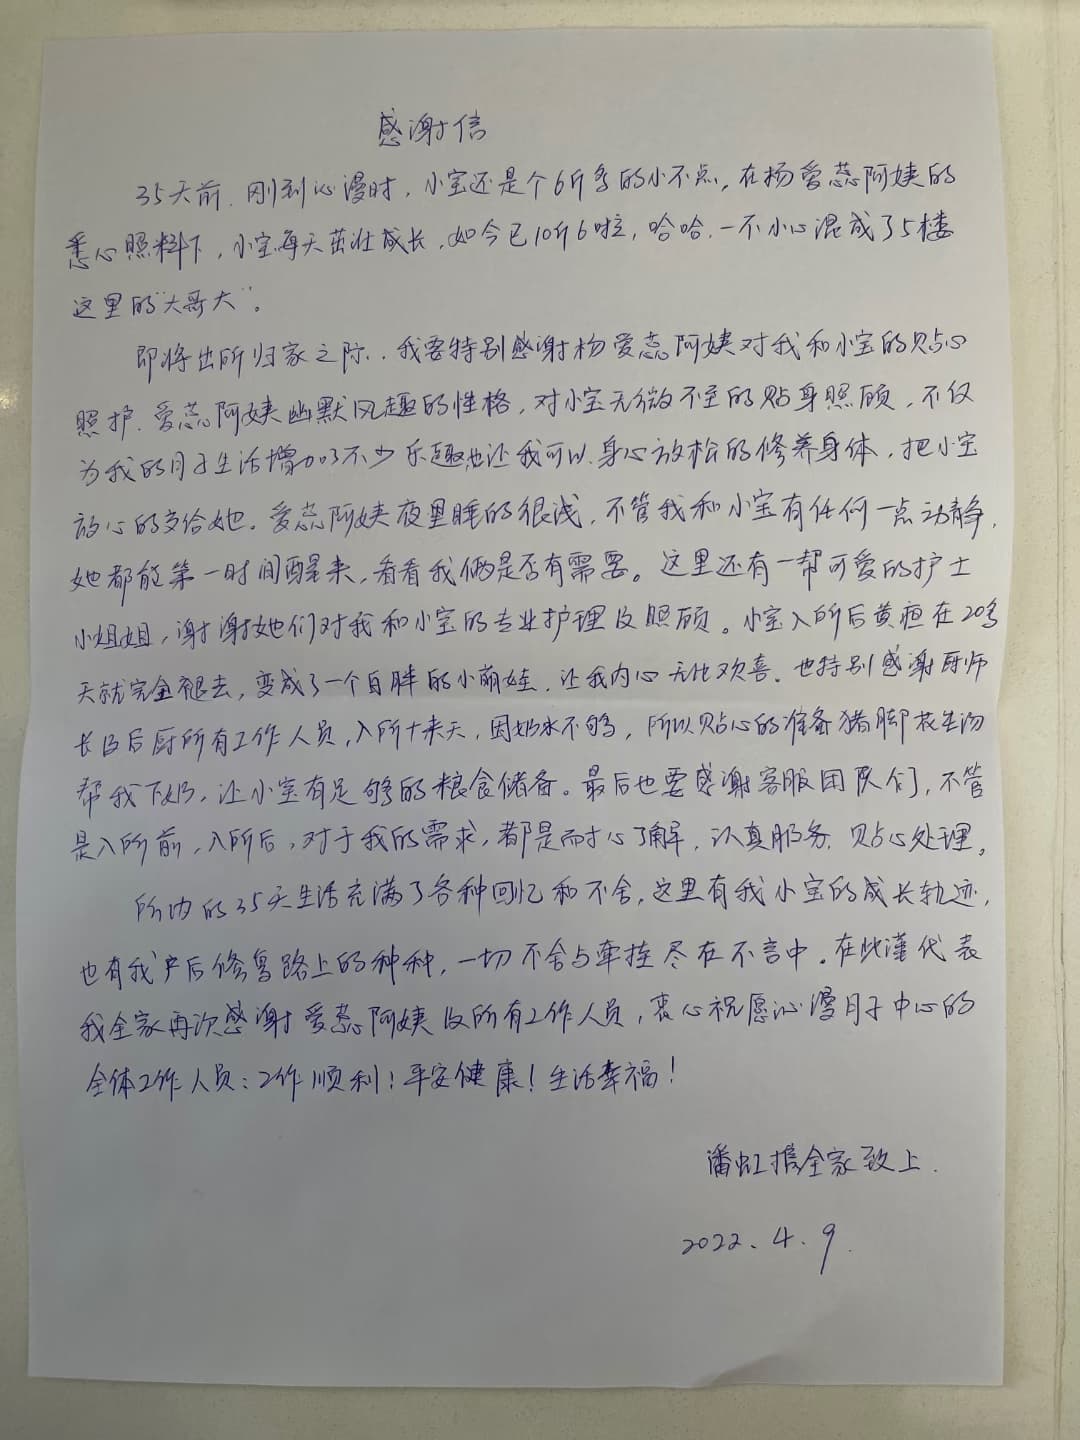 感谢信
35天前，刚到沁漫时，小宝还是个6斤多的小不点，在杨爱蕊阿姨的
悉心照料下，小宝每天茁壮成长，如今已10斤6啦，哈哈，一不小心混成了5楼
这里的“大哥大”。
即将出所归家之际，我要特别感谢杨爱蕊阿姨对我和小宝的贴心
照护，爱蕊阿姨幽默风趣的性格，对小宝无微不至的贴身照顾，不仅
为我的月子生活增加了不少乐趣也让我可以身心放松的修养身体，把小宝
放心的交给她。爱蕊阿姨夜里睡的很浅，不管我和小宝有任何一点动静，
她都能第一时间醒来，看看我俩是否有需要。这里还有一帮可爱的护士
小姐姐，谢谢她们对我和小宝的专业护理及照顾。小宝入所后黄疸在20多
天就完全褪去，变成了一个白胖的小萌娃，让我内心无比欢喜。也特别感谢厨师
长及后厨所有工作人员，入所十来天，因奶水不够，所以贴心的准备猪脚花生汤
帮我下奶，让小宝有足够的粮食储备。最后也要感谢客服团队们，不管
是入所前，入所后，对于我的需求，都是耐心了解，认真服务，贴心处理。
所内的35天生活充满了各种回忆和不舍，这里有我小宝的成长轨迹，
也有我产后修复路上的种种，一切不舍与牵挂尽在不言中。在此谨代表
我全家再次感谢爱蕊阿姨及所有工作人员，衷心祝愿沁漫月子中心的
全体工作人员：工作顺利！平安健康！生活幸福！
潘虹携全家致上.
2022.4.9.